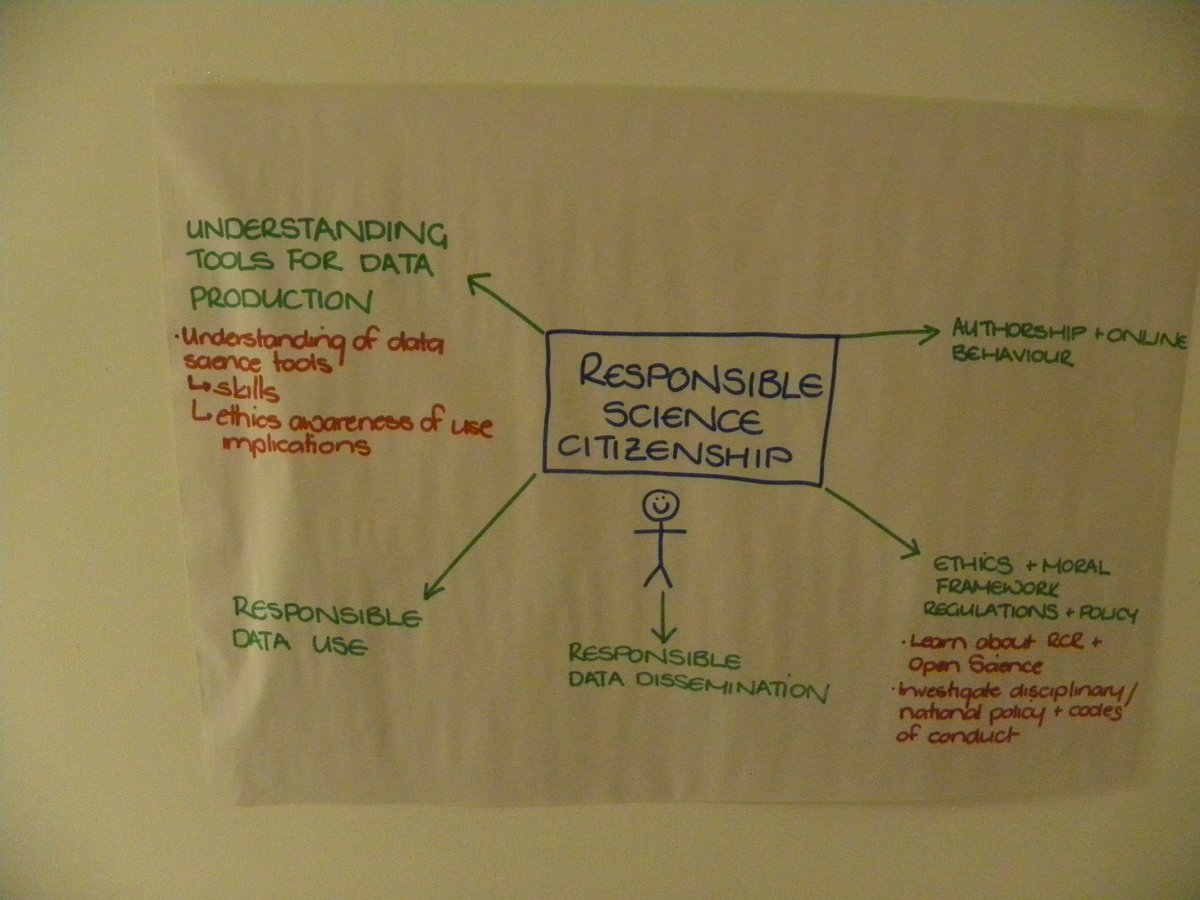 UNDERSTANDING
TOOLS FOR DATA
PRODUCTION
· Understanding of data
science tools
↳ skills
↳ ethics awareness of use
implications
RESPONSIBLE
SCIENCE
CITIZENSHIP
AUTHORSHIP + ONLINE
BEHAVIOUR
RESPONSIBLE
DATA USE
RESPONSIBLE
DATA DISSEMINATION
ETHICS + MORAL
FRAMEWORK
REGULATIONS + POLICY
· Learn about RCR +
Open Science
· Investigate disciplinary/
national policy + codes
of conduct